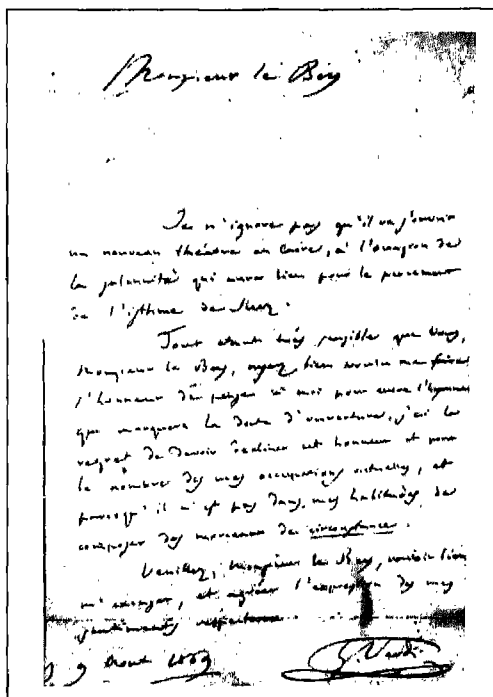 Monsieur le Bey
Je n'ignore pas qu'il va s'ouvrir
un nouveau théâtre au Caire, à l'occasion de
la solennité qui aura lieu pour le percement
de l'isthme de Suez.
Tout étant très sensible que Vous,
Monsieur le Bey, ayez bien voulu me faire
l'honneur de penser à moi pour l'hymne
qui marquera la date d'ouverture, j'ai le
regret de devoir décliner cet honneur et pour
le nombre de mes occupations actuelles, et
parcequ'il n'est pas dans mes habitudes de
composer des morceaux de circonstance.
Veuillez, Monsieur le Bey, vouloir bien
m'excuser, et agréer l'expression de mes
sentiments
9 Aout 1869 G. Verdi